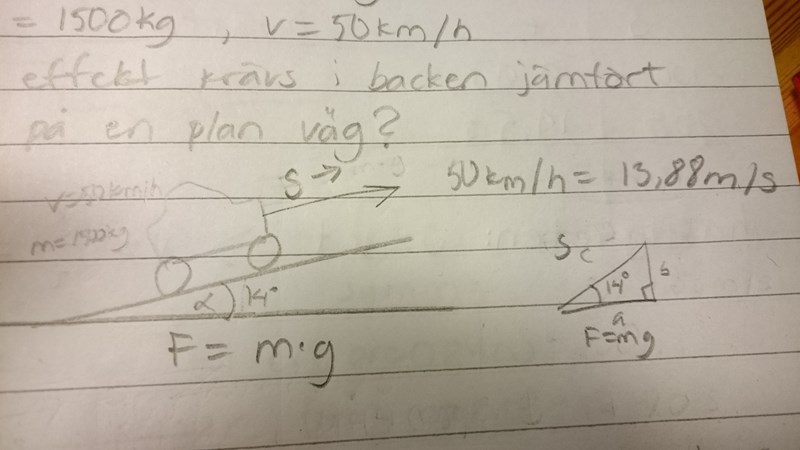 = 1500kg , v = 50km/h
effekt krävs i backen jämfört
på en plan väg?
S → 50km/h = 13,88m/s
v=50km/h
m=1500kg
S c
14° b
α 14°
a
F = m·g
F=mg